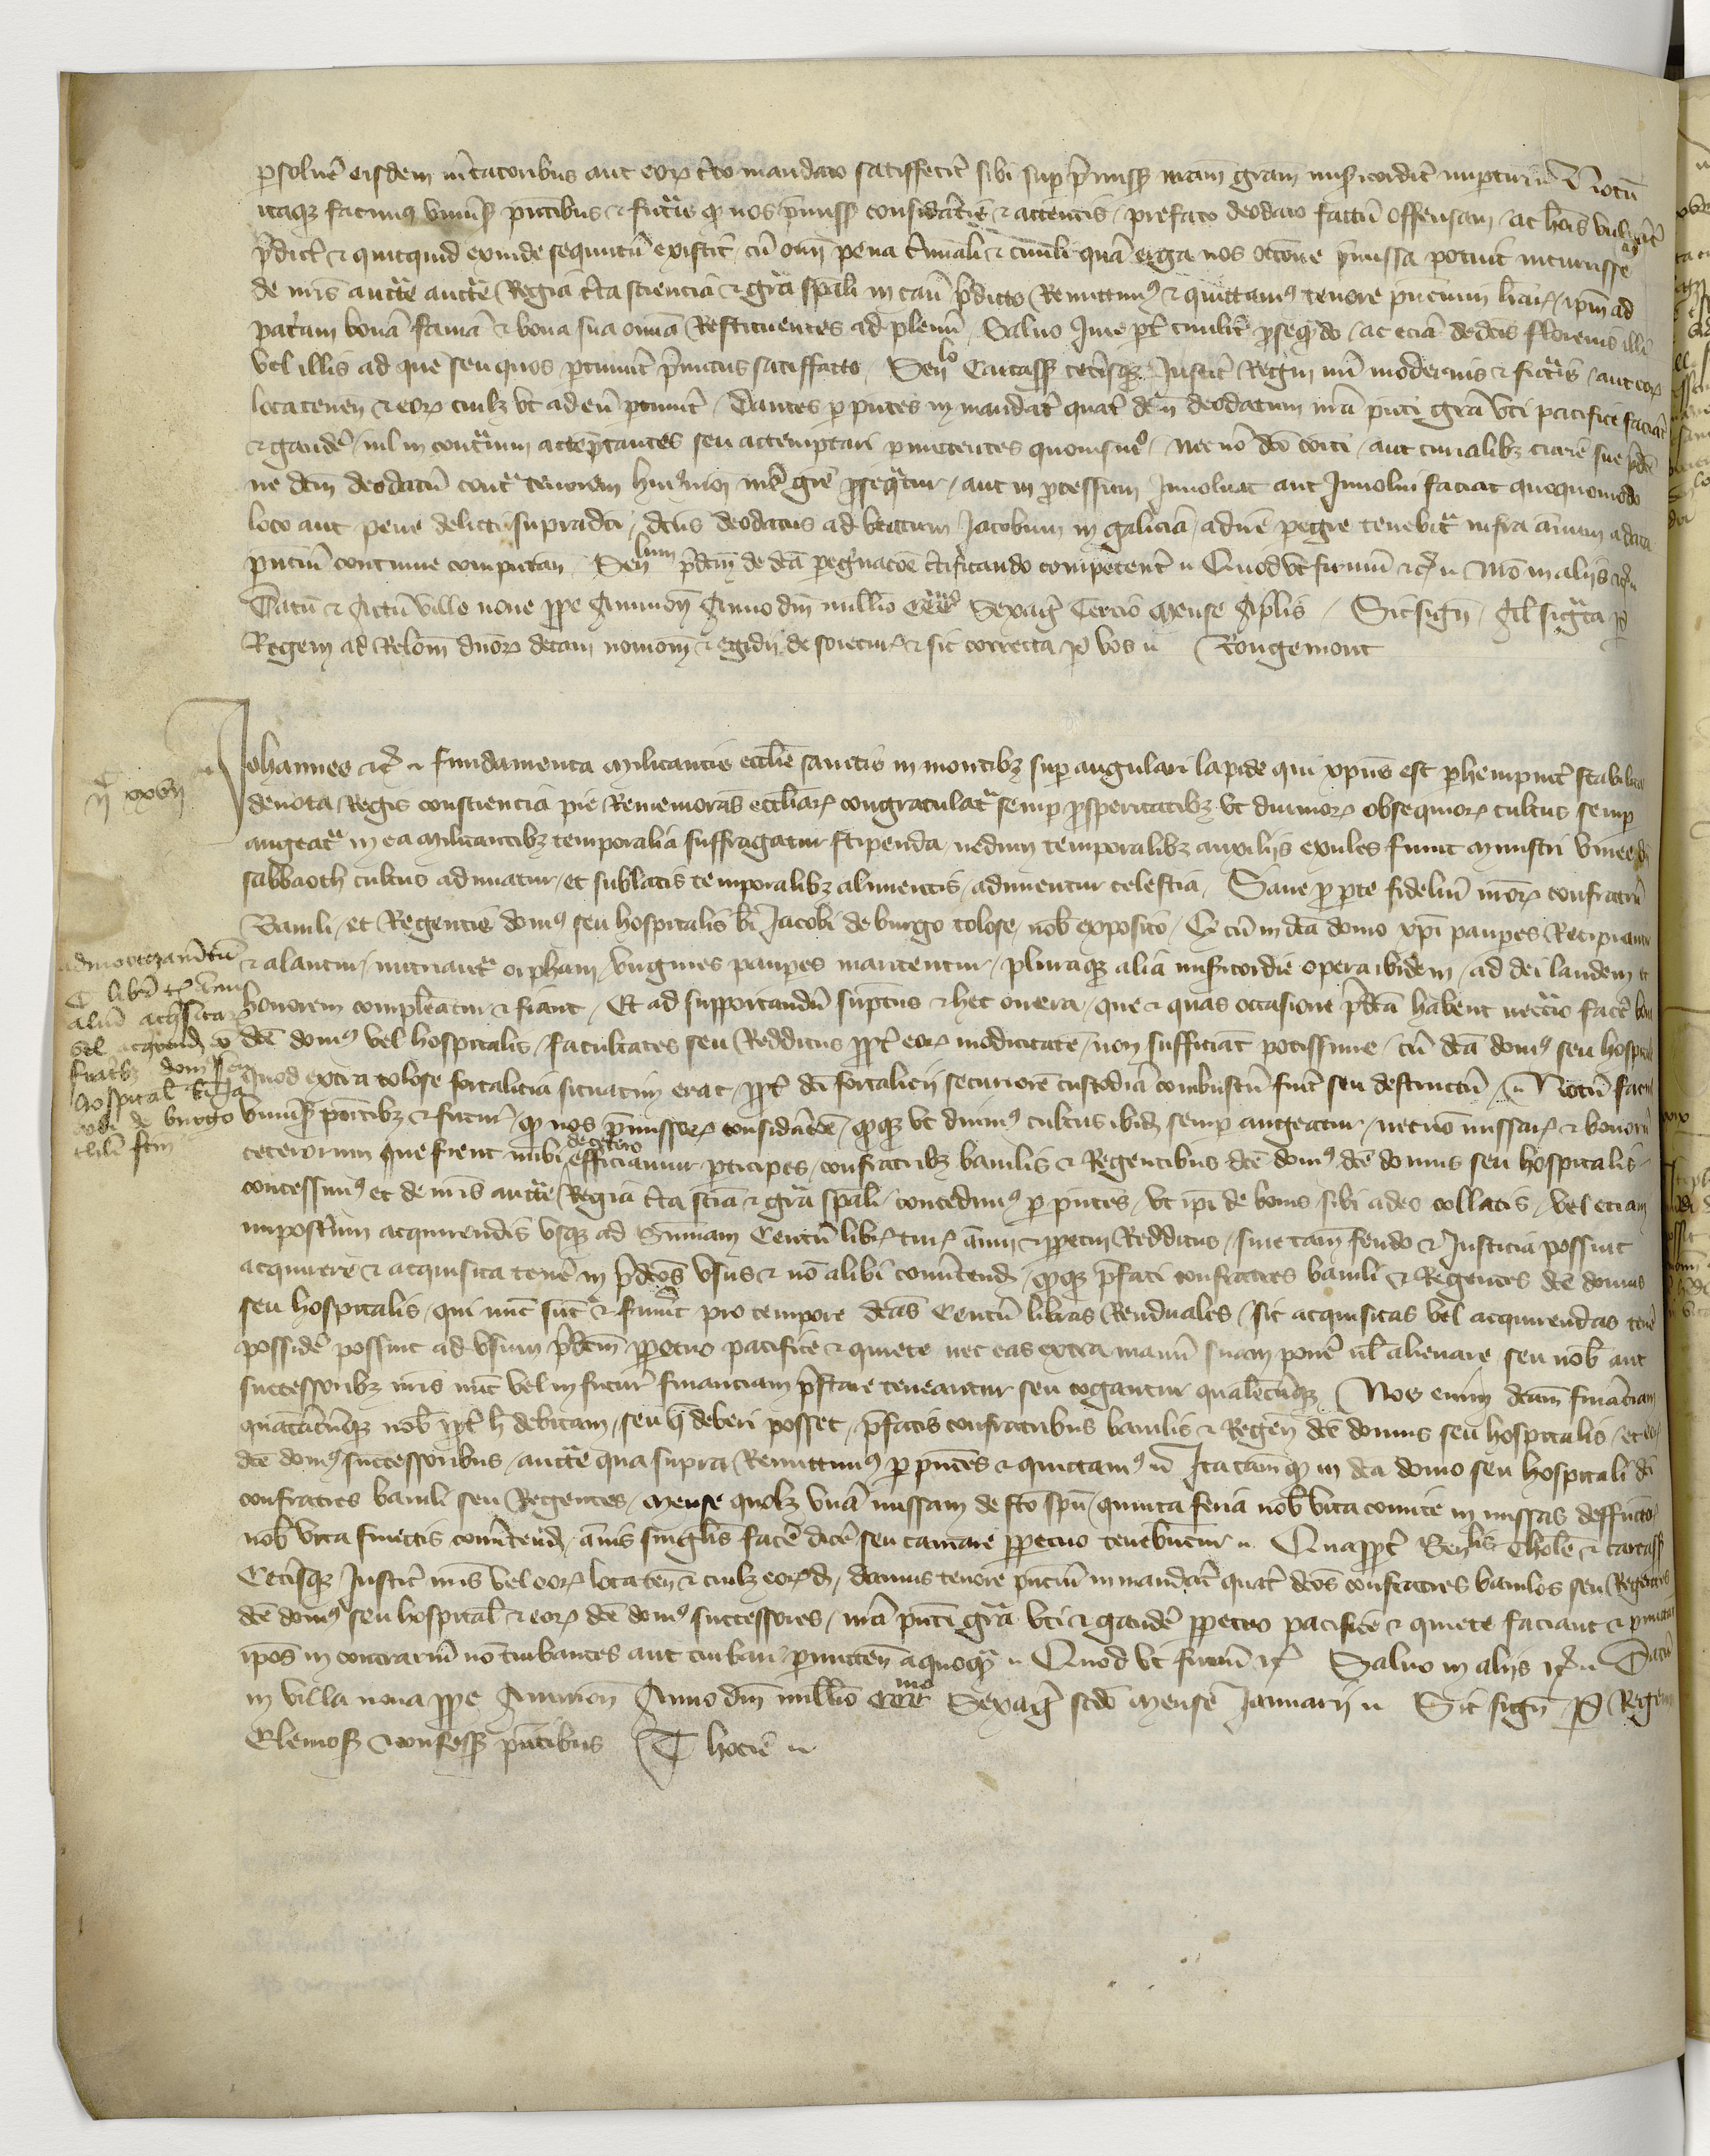 persoluit eisdem mercatoribus aut eorum certo mandato satisfecit sibi super premissis nostram graciam misericorditer impertiri. Notum
itaque facimus universis presentibus et futuris quod nos premissis consideratis et attentis prefato deodato factum offensam ac homines
predict et quicquid exinde sequutum existit cum omni pena criminali et civili quam erga nos occasione premissa potuit incurrisse
de nostris auctoritate Regia certa sciencia et gracia speciali in casu predicto Remittimus et quittamus tenore presencium litterarum ipsum ad
patriam bonam famam et bona sua omnia Restituentes ad plenum Salvo Jure partis civiliter prosequendo ac eciam dedictis florenis illi
vel illis ad quem seu quos pertinuerit primitus satisffacto Senlo Carcass ceterisque Justic Regni nostri modernis et futuris aut eorum
locatenen et eorum cuilibet ut ad eum pertinuerit Dantes per presentes in mandatis quatenus deodatum nostra presenti gracia uti pacifice faciant
et gaudere nil in contrarium attemptantes seu attemptari permittentes quovismodo nec non aut curialibus curie sue predicte
ne dictum deodatum contra tenorem huiusmodi nostre gracie prosequatur aut in processum Jnvoluat aut Jnvolvi faciat quoquomodo
loco aut pene delicti supradicti dictus deodatus ad beatum Jacobum in galicia adire peregre tenebitur infra annum a data
presencium continue computan Senlum predictum de dicta peregrinacione certificando competenter Quod ut firmum etc Nostro in aliis etc
Datum et Actum ville nove prope Avinion Anno domini millesimo CCCmo Sexages Tercio Mense Aprilis Sic sign Al signata per
Regem ad Relacionem dominorum decani noviom et egidii de soiecur et sic correcta per vos Rougemont
n xxvii
Johannes etc fundamenta militantis ecclesie sanctis in montibus super angulari lapide qui xpus est perhempniter stabilita
devota Regis consciencia pie Rememorans ecclesiarum congratulatur semper prosperitatibus ut divinorum obsequiorum cultus semper
augeatur in ea militantibus temporalia suffragatur stipendia nedum temporalibus auxiliis exules fiunt ministri vinee
sabbaoth cultus adnuatur et sublatis temporalibus alimentis adimentur celestia Sane pro parte fidelium nostrorum confratrum
Bauili et Regentis domus seu hospitalis beati Jacobi de burgo tolose nobis exposito Cum in dicta domo xpi pauperes Recipiantur
et alantur nutriantur orphani virgines pauperes maritentur pluraque alia misericordie opera ibidem ad dei laudem et
honorem compleatur et fiant Et ad supportandum sumptus et hec onera que et quas occasione predicta habent necessario facere
dicte domus vel hospitalis facultates seu Redditus propter eorum modicitatem non sufficiant potissime cum dicta domus seu hospitale
quod extra tolose fortalicia situatum erat propter dicti fortalicii securiorem custodiam combustum fuit seu destructum Notum facimus
universis presentibus et futuris quod nos premissorum consideracione quodque ut divinus cultus ibidem semper augeatur necnon missarum et bonorum
ceterorum que fient inibi de cetero efficiamur participes confratribus bauilis et Regentibus dicte domus dicte domus seu hospitalis
concessimus et de nostris auctoritate Regia certa sciencia et gracia speciali concedimus per presentes ut ipsi de bonis sibi adeo collatis vel eciam
imposterum acquirendis usque ad Summam Centum librarum turonensium annui et perpetui Redditus sine tamen feudo et Justicia possint
acquirere et acquisita tenere in predictos usus et non alibi convertend quodque prefati confratres bauili et Regentes dicte domus
seu hospitalis qui nunc sunt et fuerint pro tempore dictas Centum libras Renduales sic acquisitas vel acquirendas tenere
possidere possint ad usum predictum perpetuo pacifice et quiete nec eas extra manum suam ponere vel alienare seu nobis aut
successoribus nostris nunc vel in futurum financiam prestare teneantur seu cogantur qualemcunque Nos enim dictam financiam
quantamcunque nobis propter hoc debitam seu que deberi posset prefatis confratribus bauilis et Regen dicte domus seu hospitalis et eorum
dicte domus successoribus auctoritate qua supra Remittimus per presentes et quittamus Ita tamen quod in dicta domo seu hospitali dicti
confratres bauili seu Regentes mense quolibet unam missam de sancto spiritu quinta feria nobis vita comite in missas deffunctorum
nobis vita functis convertend annis singulis facere dicere seu cantare perpetuo tenebuntur Quapropter Senlis Tholose et Carcass
Ceterisque Justic nostris vel eorum locaten et cuilibet eorumdem damus tenore presencium in mandatis quatenus dictos confratres bauilos seu Regentes
dicte domus seu hospital et eorum dicte domus successores nostra presenti gracia uti et gaudere perpetuo pacifice et quiete faciant et permittant
ipsos in contrarium non turbantes aut turbari permitten a quoquam Quod ut firmum etc Salvo in aliis etc Datum
in villa nova prope Avinion Anno domini millesimo CCCmo Sexages secundo mense Januarii Sic sign Per Regem
Elemos et confess presentibus T hocie
admortizamentum
C libr tur
alias acquisitar
vel acquirend
fratribus dom seu
hospital
de burgo